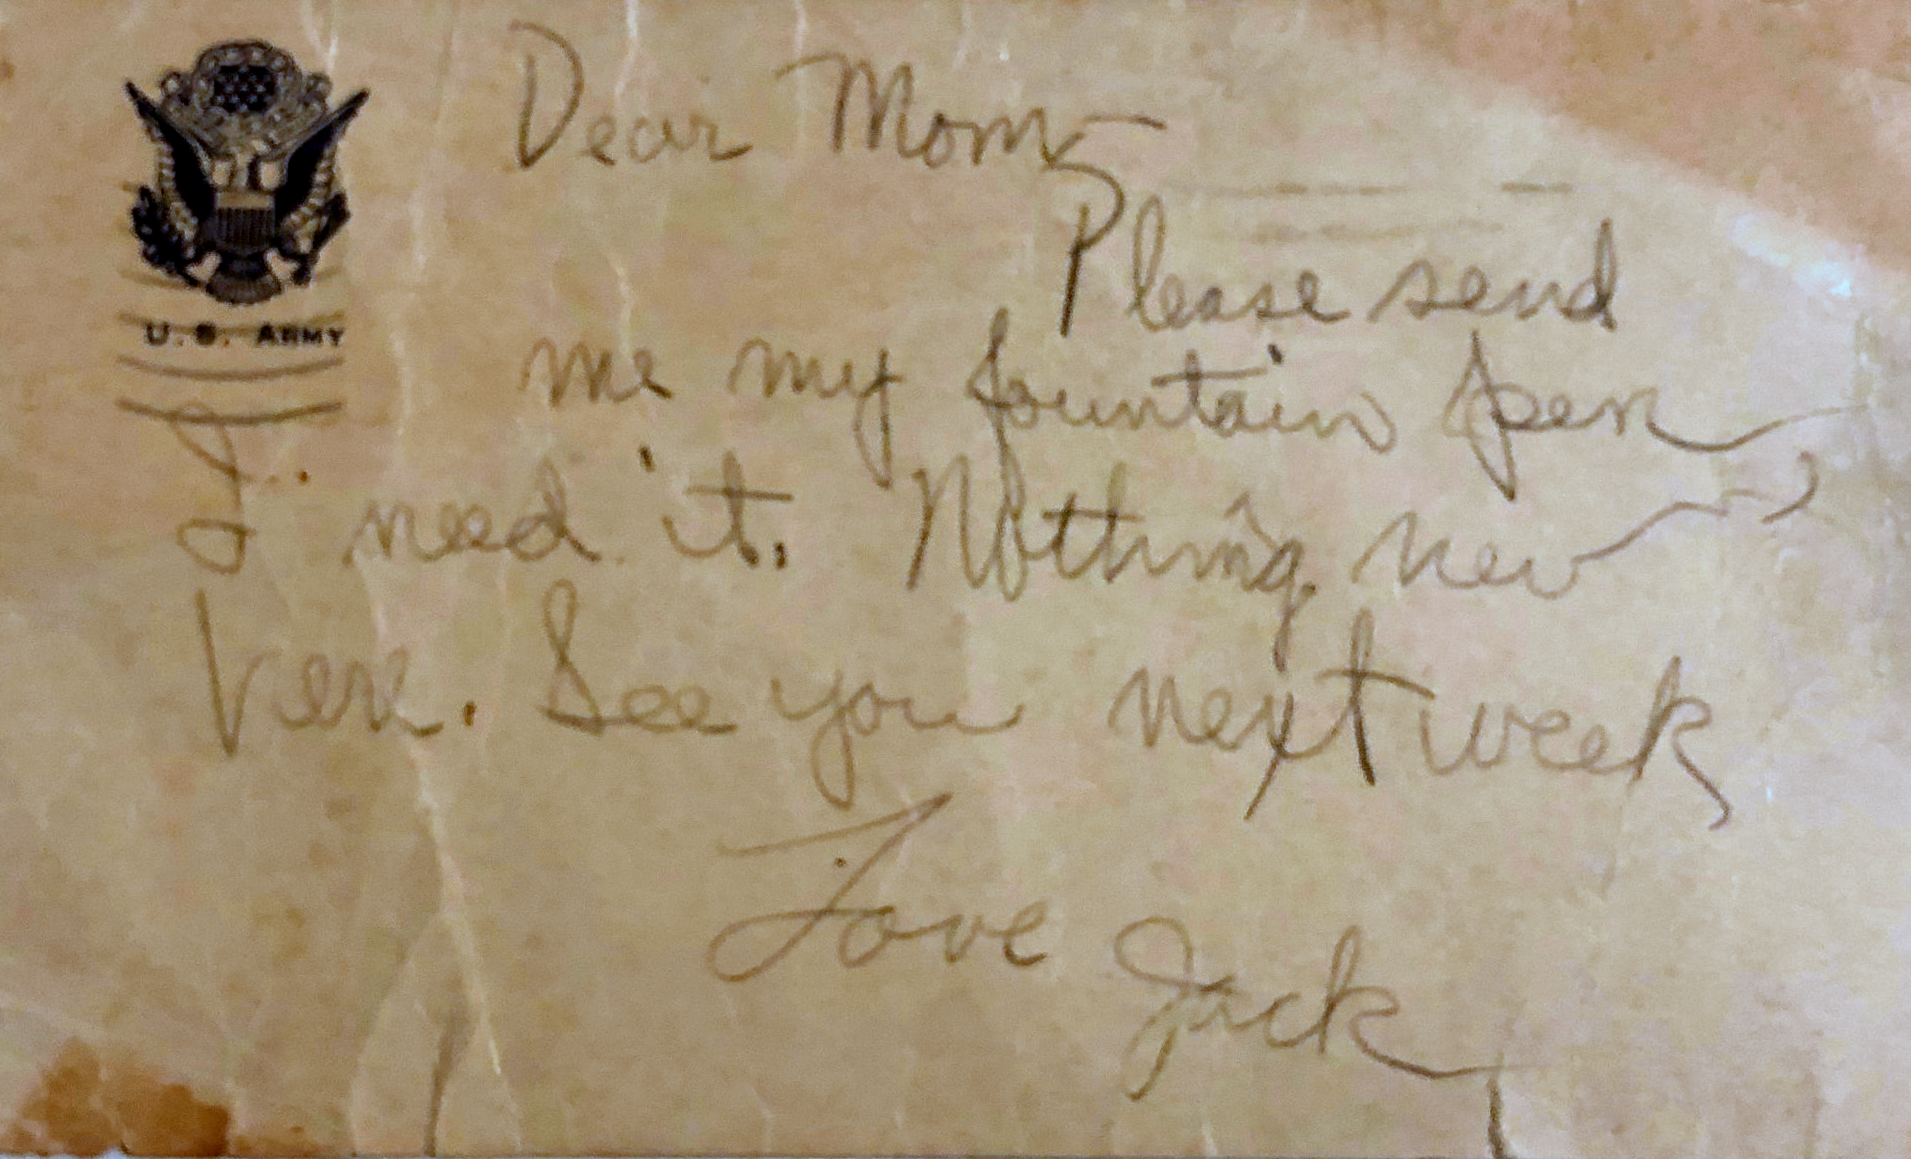 Dear Mom,
Please send
U.S. ARMY
me my fountain pen
I need it. Nothing new
here. See you next week
Love Jack